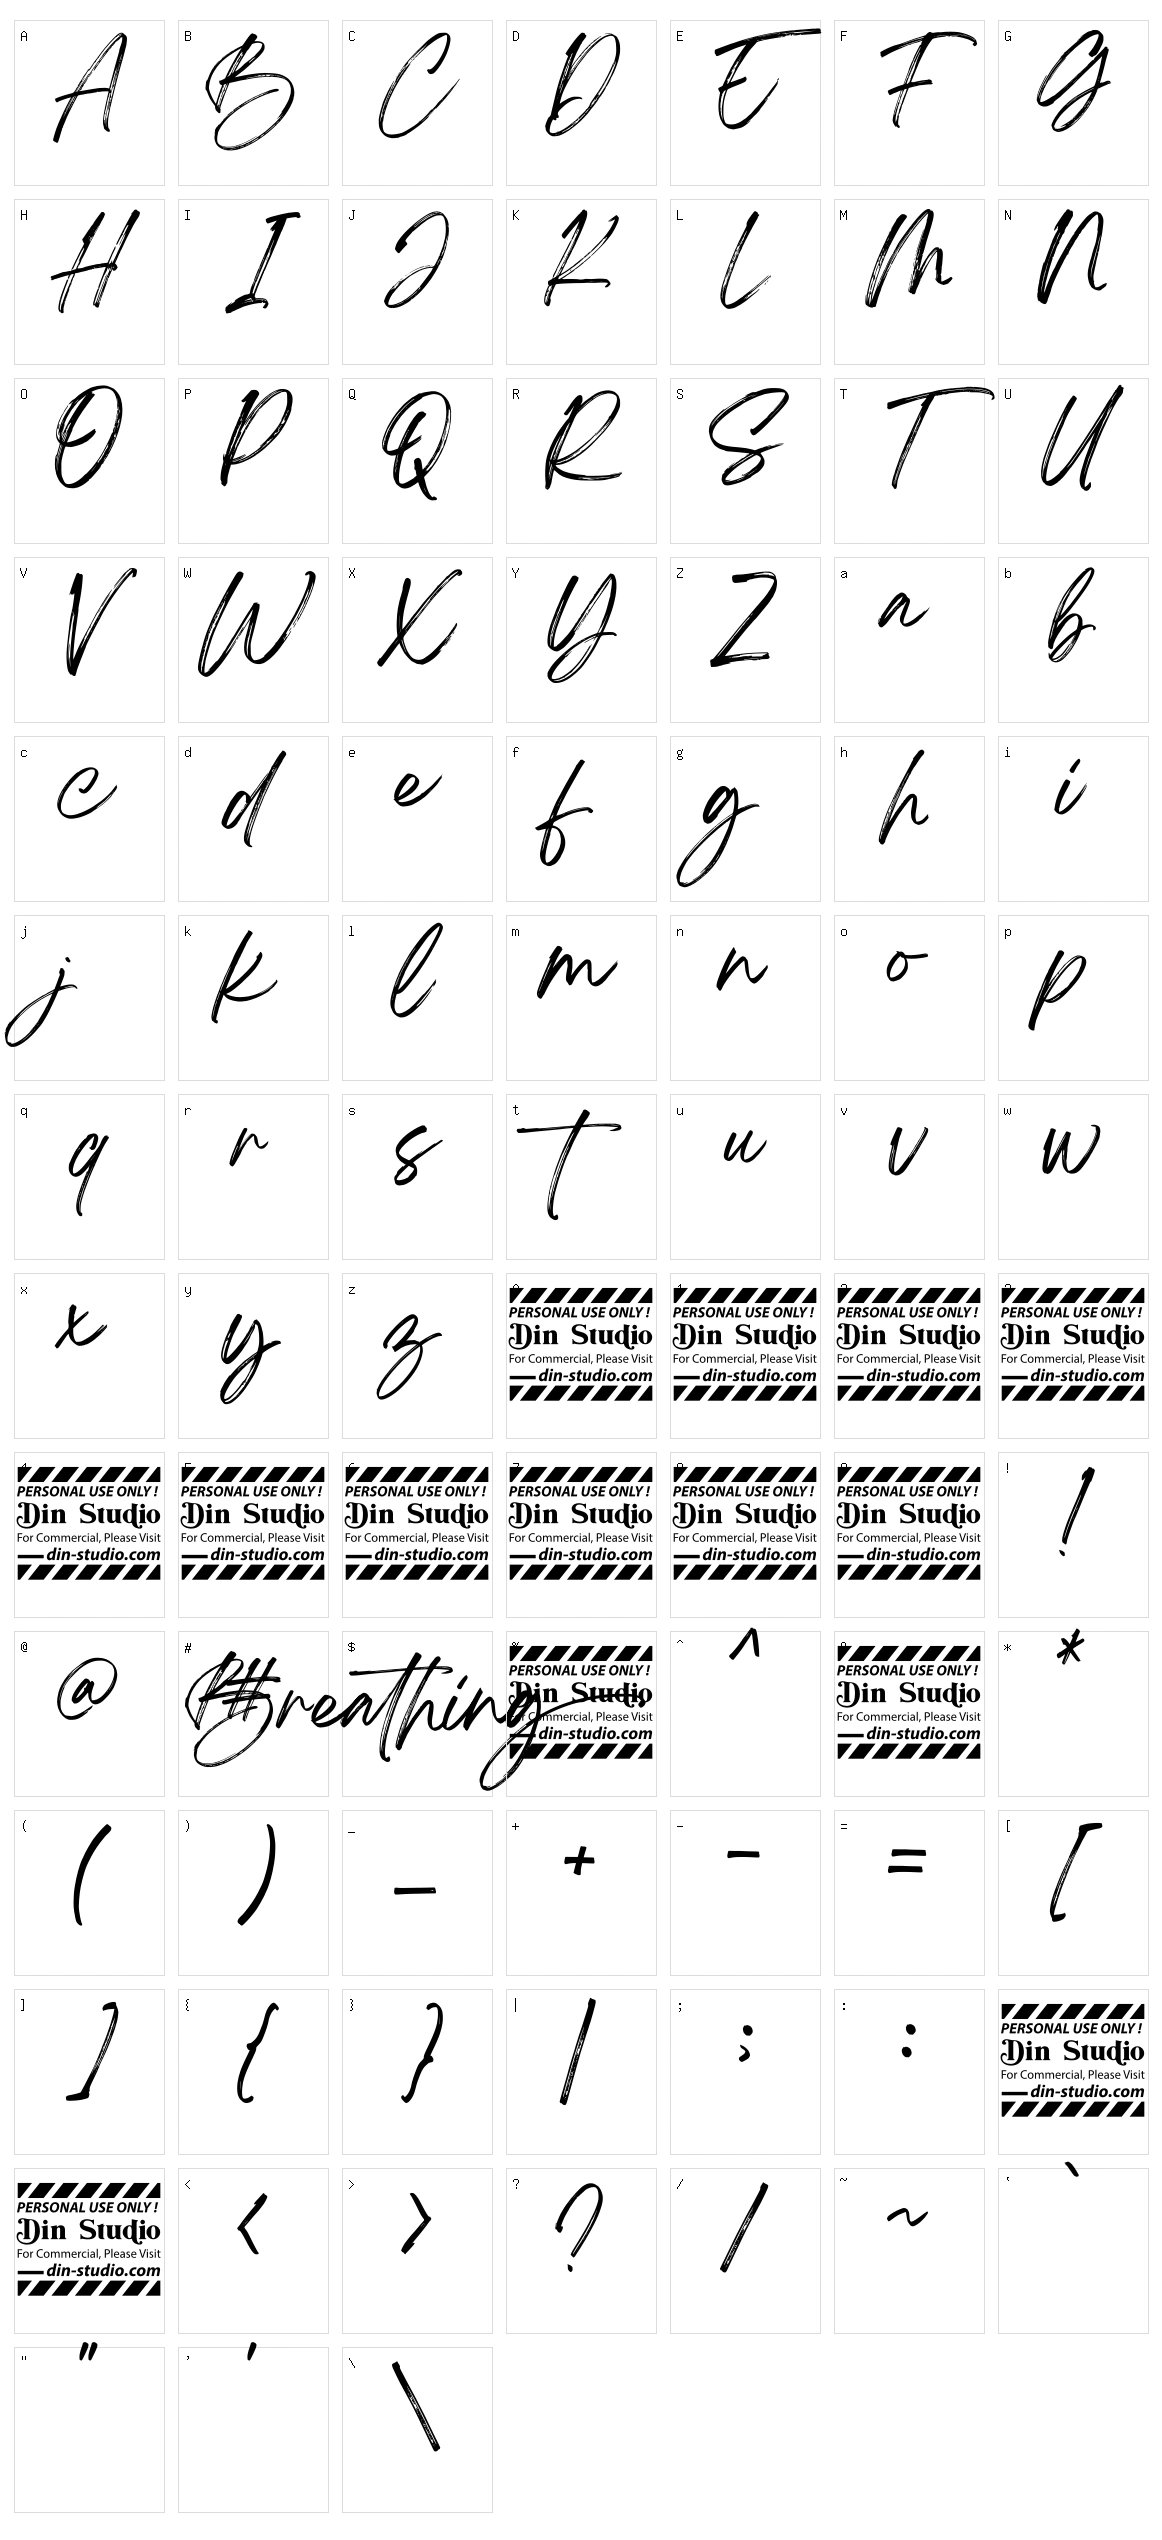 A B C D E F G
A B C D E F G
H I J K L M N
H I J K L M N
O P Q R S T U
O P Q R S T U
V W X Y Z a b
V W X Y Z a b
c d e f g h i
c d e f g h i
j k l m n o p
j k l m n o p
q r s t u v w
q r s t u v w
x y z
x y z
PERSONAL USE ONLY ! PERSONAL USE ONLY ! PERSONAL USE ONLY ! PERSONAL USE ONLY !
Din Studio Din Studio Din Studio Din Studio
For Commercial, Please Visit For Commercial, Please Visit For Commercial, Please Visit For Commercial, Please Visit
din-studio.com din-studio.com din-studio.com din-studio.com
!
PERSONAL USE ONLY ! PERSONAL USE ONLY ! PERSONAL USE ONLY ! PERSONAL USE ONLY ! PERSONAL USE ONLY ! PERSONAL USE ONLY ! !
Din Studio Din Studio Din Studio Din Studio Din Studio Din Studio
For Commercial, Please Visit For Commercial, Please Visit For Commercial, Please Visit For Commercial, Please Visit For Commercial, Please Visit For Commercial, Please Visit
din-studio.com din-studio.com din-studio.com din-studio.com din-studio.com din-studio.com
@ # $ % ^ *
@ # Breathing ^ *
PERSONAL USE ONLY ! PERSONAL USE ONLY !
Din Studio Din Studio
For Commercial, Please Visit For Commercial, Please Visit
din-studio.com din-studio.com
( ) _ + - = [
( ) _ + - = [
] { } | ; :
] { } | ; :
PERSONAL USE ONLY !
Din Studio
For Commercial, Please Visit
din-studio.com
< > ? / ~ `
PERSONAL USE ONLY ! < > ? / ~ `
Din Studio
For Commercial, Please Visit
din-studio.com
" ' \
" ' \